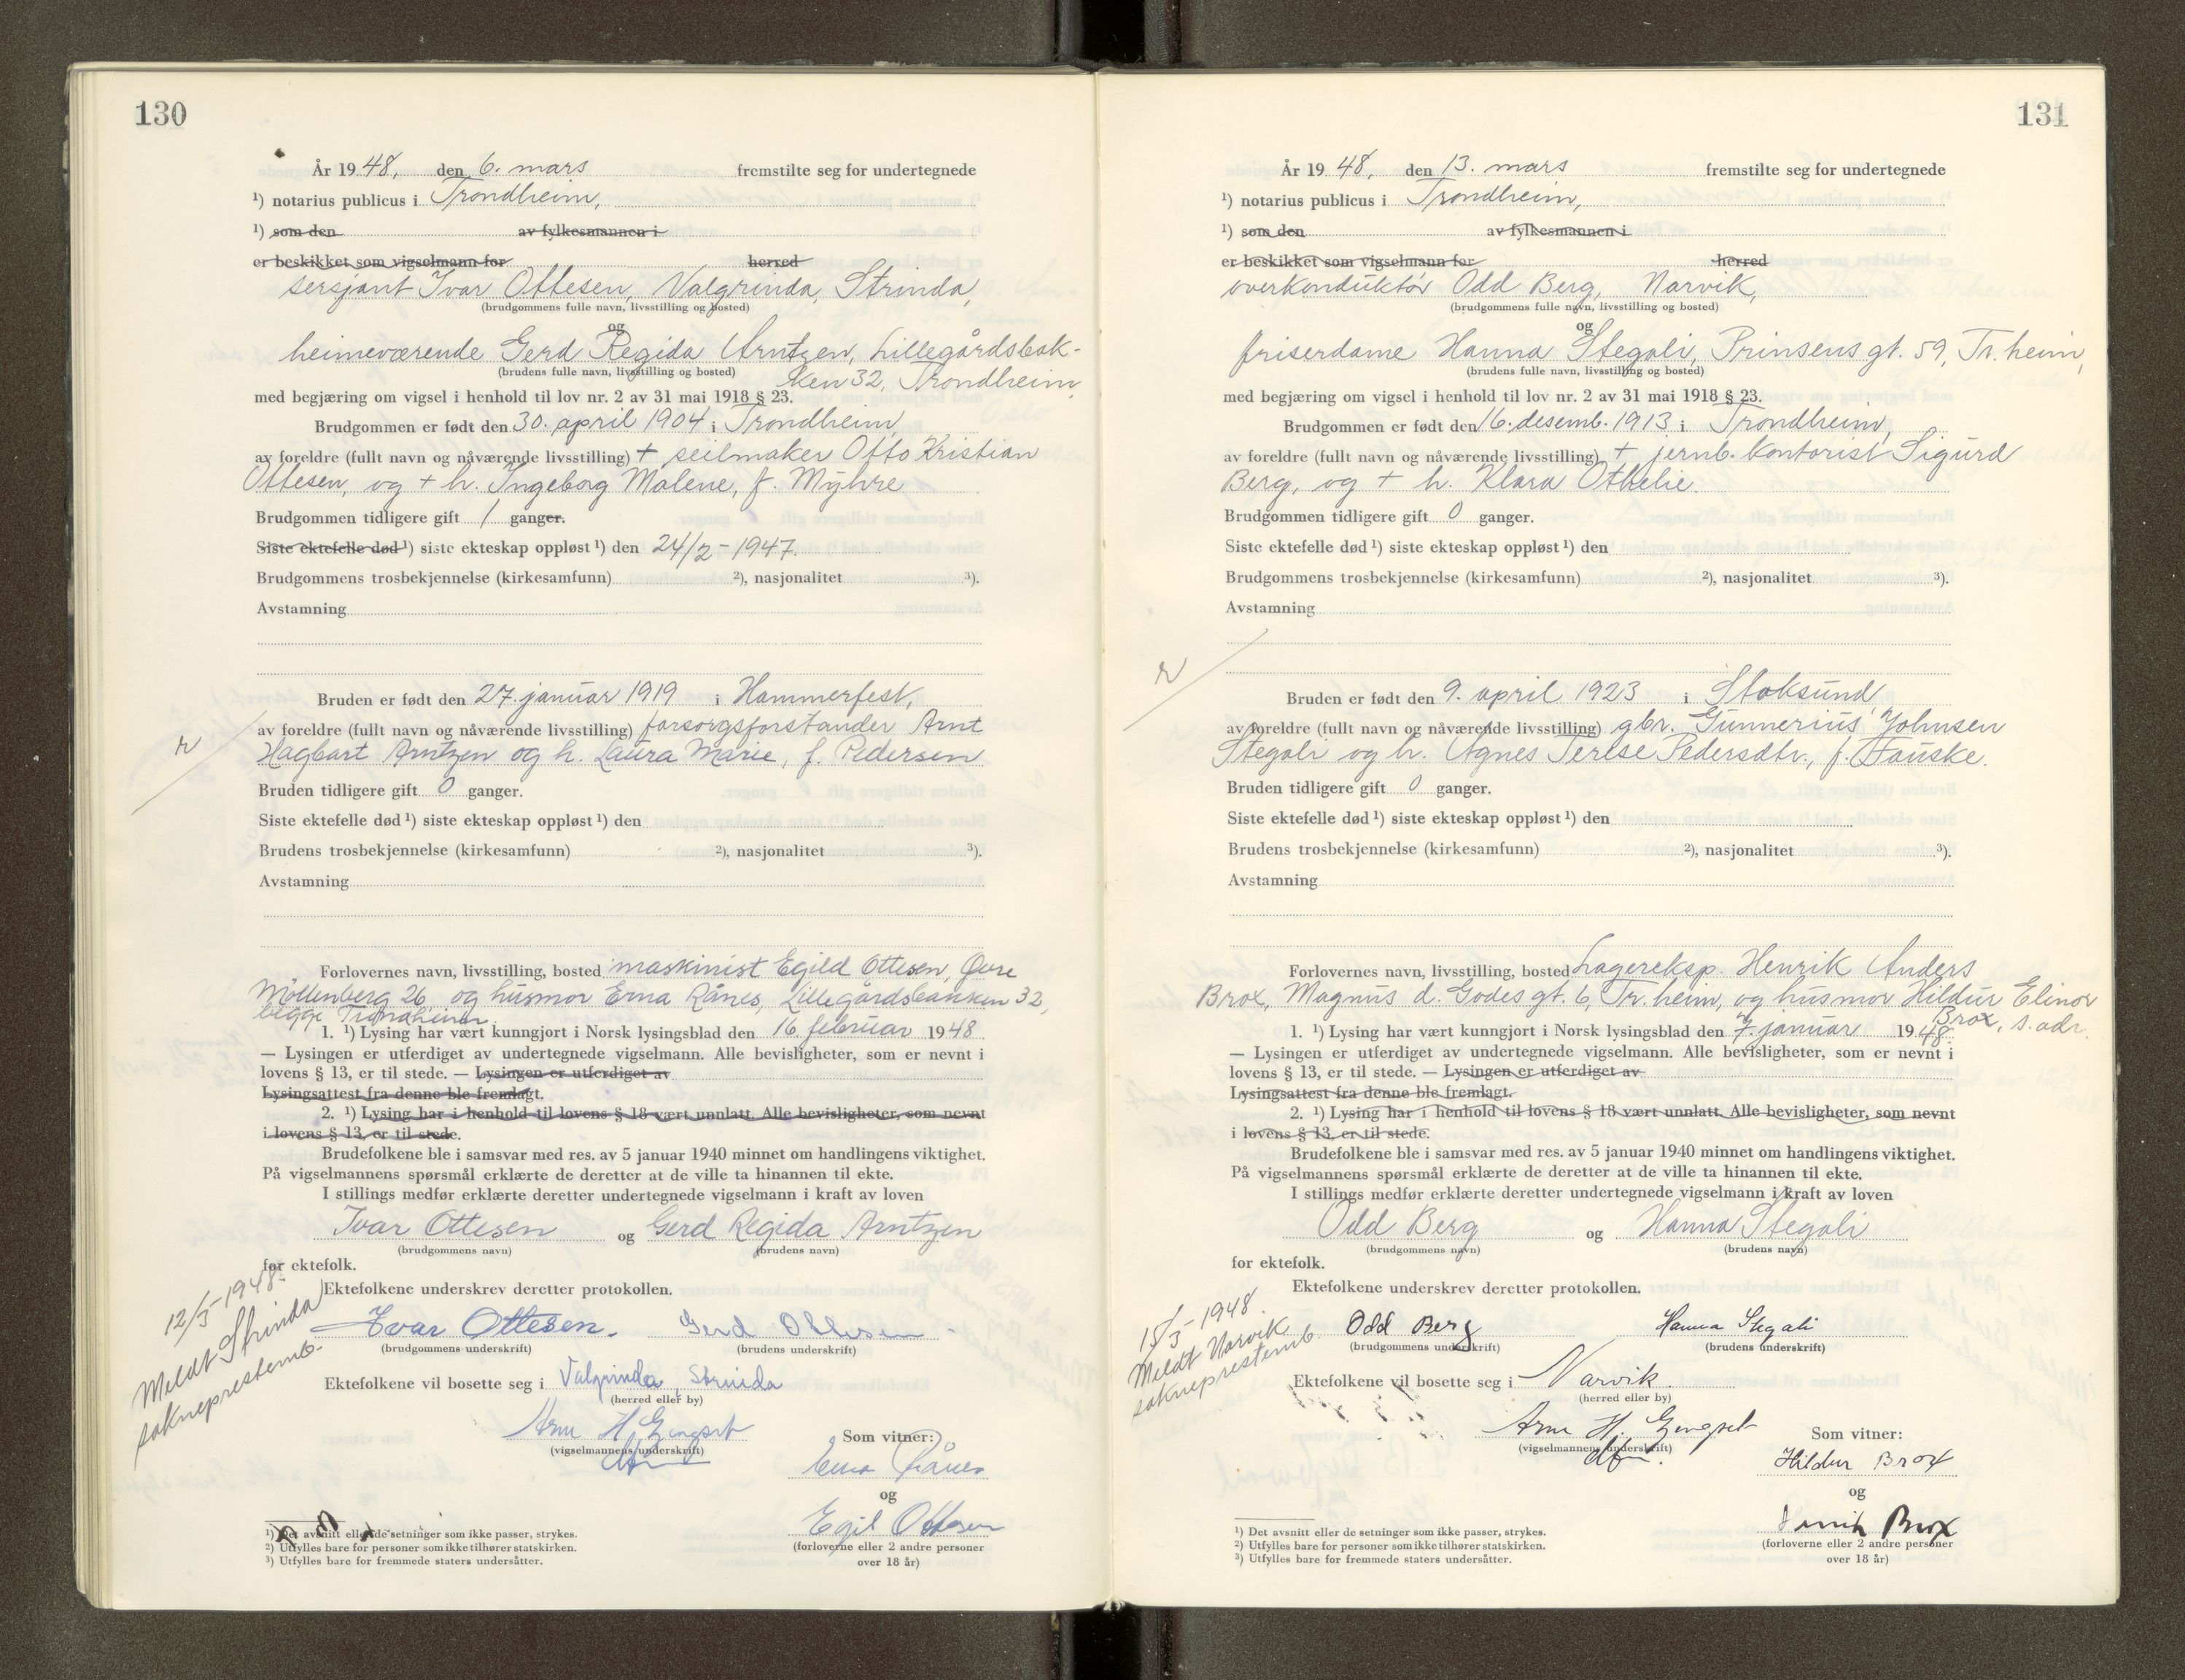 130
År 1948, den 6. mars fremstilte seg for undertegnede
¹) notarius publicus i Trondheim,
¹) som den av fylkesmannen i
er beskikket som vigselmann for herred
sersjant Ivar Ottesen, Valgrinda, Strinda,
(brudgommens fulle navn, livsstilling og bosted)
og
heimeværende Gerd Regida Arntzen, Lillegårdsbak-
(brudens fulle navn, livsstilling og bosted) ken 32, Trondheim,
med begjæring om vigsel i henhold til lov nr. 2 av 31 mai 1918 § 23.
Brudgommen er født den 30. april 1904 i Trondheim,
av foreldre (fullt navn og nåværende livsstilling) + seilmaker Otto Kristian
Ottesen, og + h. Ingeborg Malene, f. Myhre
Brudgommen tidligere gift 1 ganger.
Siste ektefelle død ¹) siste ekteskap oppløst ¹) den 24/2-1947.
Brudgommens trosbekjennelse (kirkesamfunn) ²), nasjonalitet ³).
Avstamning
Bruden er født den 27. januar 1919 i Hammerfest,
av foreldre (fullt navn og nåværende livsstilling) forsorgsforstander Arnt
Hagbart Arntzen og h. Laura Marie, f. Pedersen
Bruden tidligere gift 0 ganger.
Siste ektefelle død ¹) siste ekteskap oppløst ¹) den
Brudens trosbekjennelse (kirkesamfunn) ²), nasjonalitet ³).
Avstamning
Forlovernes navn, livsstilling, bosted maskinist Egild Ottesen, Øvre
Møllenberg 26 og husmor Erna Rånes, Lillegårdsbakken 32,
begge Trondheim
1. ¹) Lysing har vært kunngjort i Norsk lysingsblad den 16. februar 1948
— Lysingen er utferdiget av undertegnede vigselmann. Alle bevisligheter, som er nevnt i
lovens § 13, er til stede. — Lysingen er utferdiget av
Lysingsattest fra denne ble fremlagt.
2. ¹) Lysing har i henhold til lovens § 18 vært unnlatt. Alle bevisligheter, som nevnt
i lovens § 13, er til stede.
Brudefolkene ble i samsvar med res. av 5 januar 1940 minnet om handlingens viktighet.
På vigselmannens spørsmål erklærte de deretter at de ville ta hinannen til ekte.
I stillings medfør erklærte deretter undertegnede vigselmann i kraft av loven
Ivar Ottesen og Gerd Regida Arntzen
(brudgommens navn) (brudens navn)
for ektefolk.
Ektefolkene underskrev deretter protokollen.
12/3-1948.
Meldt Strinda
sokneprestemb.
Ivar Ottesen. Gerd Ottesen
(brudgommens underskrift) (brudens underskrift)
Ektefolkene vil bosette seg i Valgrinda, Strinda
(herred eller by)
Arne H. Gengset
(vigselmannens underskrift)
dfm
Som vitner:
Erna Rånes
og
Egil Ottesen
(forloverne eller 2 andre personer
over 18 år)
¹) Det avsnitt eller de setninger som ikke passer, strykes.
²) Utfylles bare for personer som ikke tilhører statskirken.
³) Utfylles bare for fremmede staters undersåtter.
131
År 1948, den 13. mars fremstilte seg for undertegnede
¹) notarius publicus i Trondheim,
¹) som den av fylkesmannen i
er beskikket som vigselmann for herred
overkonduktør Odd Berg, Narvik,
(brudgommens fulle navn, livsstilling og bosted)
og
friserdame Hanna Stegali, Prinsens gt. 59, Tr.heim,
(brudens fulle navn, livsstilling og bosted)
med begjæring om vigsel i henhold til lov nr. 2 av 31 mai 1918 § 23.
Brudgommen er født den 16. desemb. 1913 i Trondheim,
av foreldre (fullt navn og nåværende livsstilling) + jernb. kontorist Sigurd
Berg, og + h. Klara Othelie.
Brudgommen tidligere gift 0 ganger.
Siste ektefelle død ¹) siste ekteskap oppløst ¹) den
Brudgommens trosbekjennelse (kirkesamfunn) ²), nasjonalitet ³).
Avstamning
Bruden er født den 9. april 1923 i Stoksund,
av foreldre (fullt navn og nåværende livsstilling) gbr. Gunnerius Johnsen
Stegali og h. Agnes Terese Pedersdtr., f. Fauske.
Bruden tidligere gift 0 ganger.
Siste ektefelle død ¹) siste ekteskap oppløst ¹) den
Brudens trosbekjennelse (kirkesamfunn) ²), nasjonalitet ³).
Avstamning
Forlovernes navn, livsstilling, bosted Lagereksp. Henrik Anders
Brox, Magnus d. Godes gt. 6, Tr.heim, og husmor Hildur Elinor
Brox, s. adr.
1. ¹) Lysing har vært kunngjort i Norsk lysingsblad den 7. januar 1948.
— Lysingen er utferdiget av undertegnede vigselmann. Alle bevisligheter, som er nevnt i
lovens § 13, er til stede. — Lysingen er utferdiget av
Lysingsattest fra denne ble fremlagt.
2. ¹) Lysing har i henhold til lovens § 18 vært unnlatt. Alle bevisligheter, som nevnt
i lovens § 13, er til stede.
Brudefolkene ble i samsvar med res. av 5 januar 1940 minnet om handlingens viktighet.
På vigselmannens spørsmål erklærte de deretter at de ville ta hinannen til ekte.
I stillings medfør erklærte deretter undertegnede vigselmann i kraft av loven
Odd Berg og Hanna Stegali
(brudgommens navn) (brudens navn)
for ektefolk.
Ektefolkene underskrev deretter protokollen.
15/3-1948.
Meldt Narvik
sokneprestemb.
Odd Berg Hanna Stegali
(brudgommens underskrift) (brudens underskrift)
Ektefolkene vil bosette seg i Narvik.
(herred eller by)
Arne H. Gengset
(vigselmannens underskrift)
dfm.
Som vitner:
Hildur Brox
og
Henrik Brox
(forloverne eller 2 andre personer
over 18 år)
¹) Det avsnitt eller de setninger som ikke passer, strykes.
²) Utfylles bare for personer som ikke tilhører statskirken.
³) Utfylles bare for fremmede staters undersåtter.